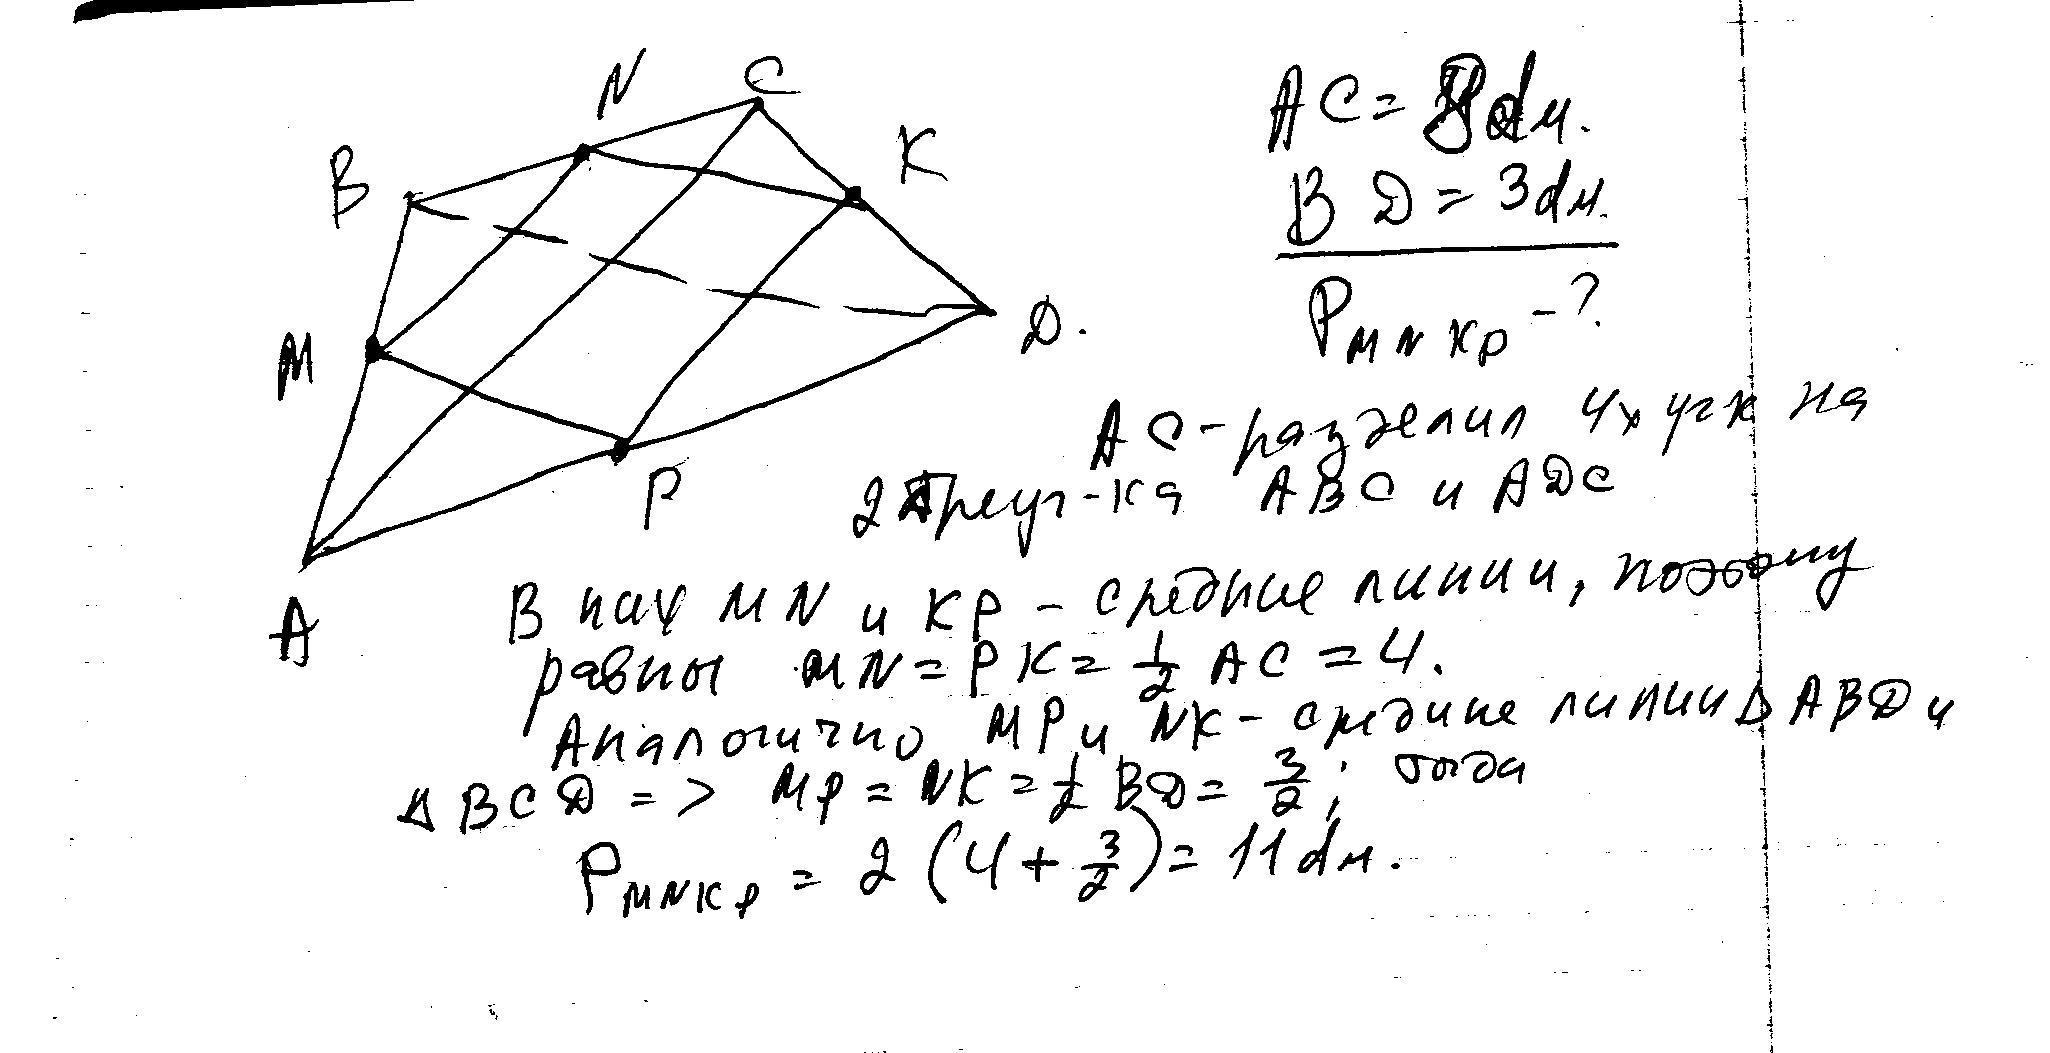 N
C
K
B
M
D.
P
A
AC = 8 дм.
BD = 3 дм.
P MNKP - ?
AC - разделил 4х угк на
2 треуг-ка ABC и ADC
В них MN и KP - средние линии, поэтому
равны MN = PK = 1/2 AC = 4.
Аналогично MP и NK - средние линии Δ ABD и
Δ BCD => MP = NK = 1/2 BD = 3/2; тогда
P MNKP = 2 (4 + 3/2) = 11 дм.